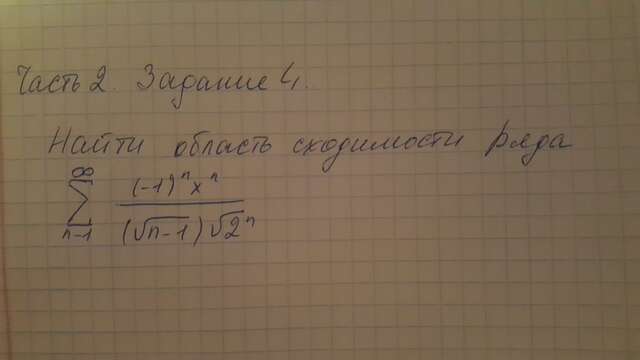 Часть 2. Задание 4.
Найти область сходимости ряда
∞
∑ (-1)ⁿxⁿ / (√n-1)√2ⁿ
n-1